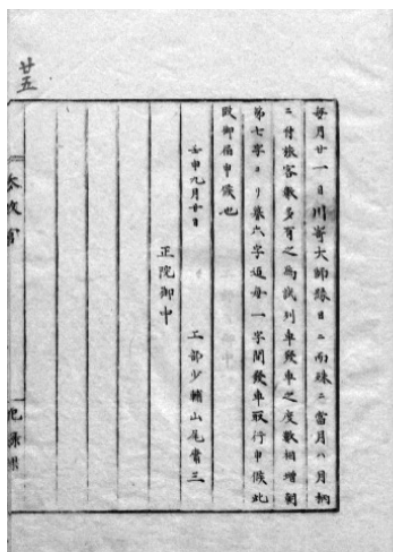 廿五
毎月廿一日川崎大師縁日ニ而殊ニ當月ハ月柄
ニ付旅客數多有之為試列車發車之度數相増朝
第七字ヨリ暮六字迠毎一字間發車取行申候此
段御届申候也
壬申九月廿日
工部少輔山尾庸三
正院御中